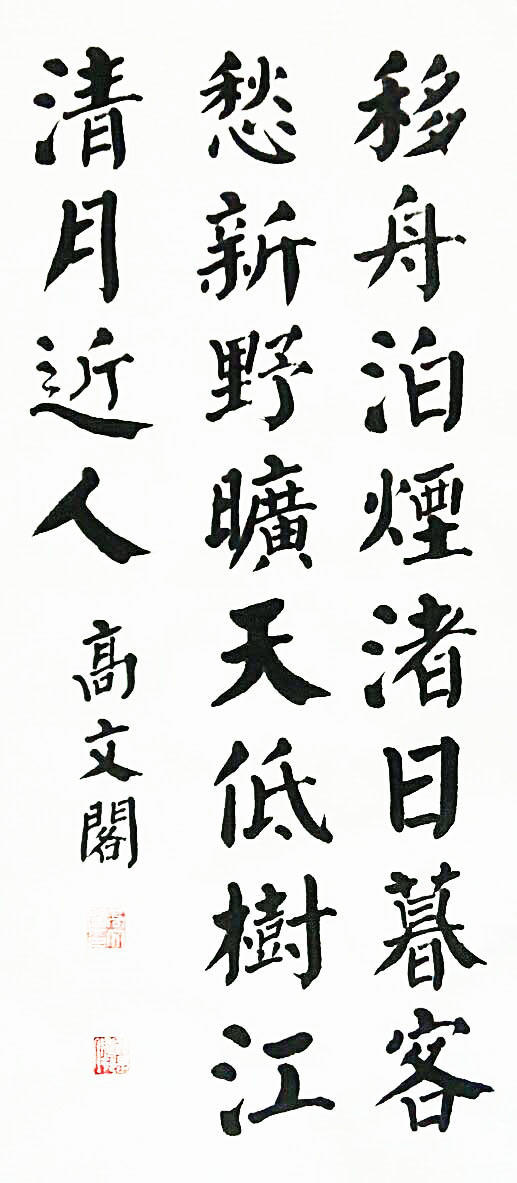 移舟泊煙渚日暮客
愁新野曠天低樹江
清月近人
高文閣